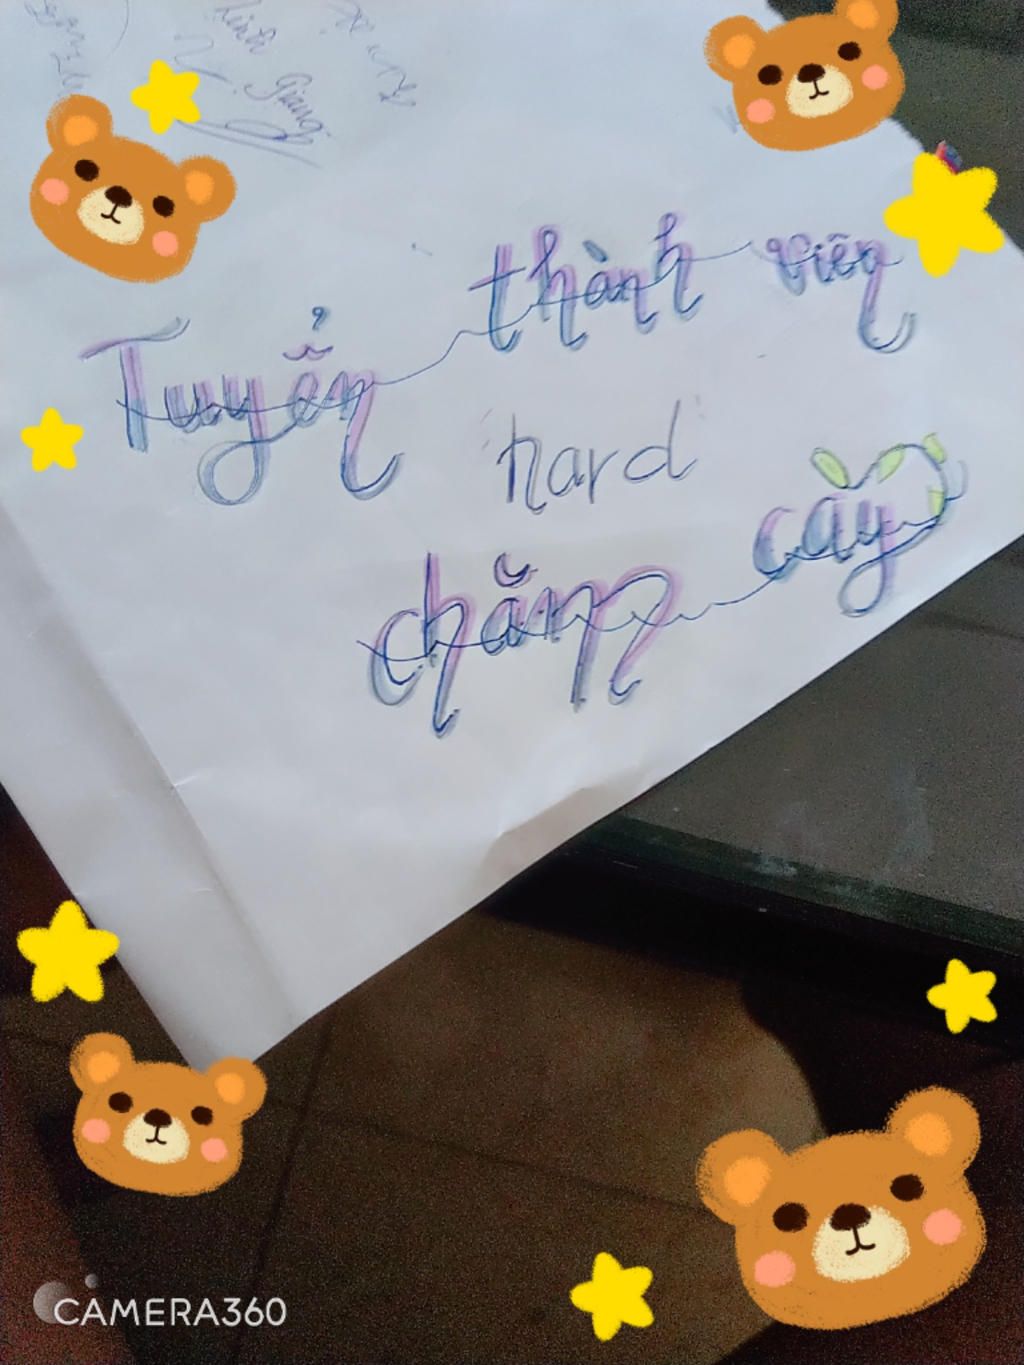 Linh
Giang
Tuyển thành viên
"hard"
chăm cày
CAMERA360